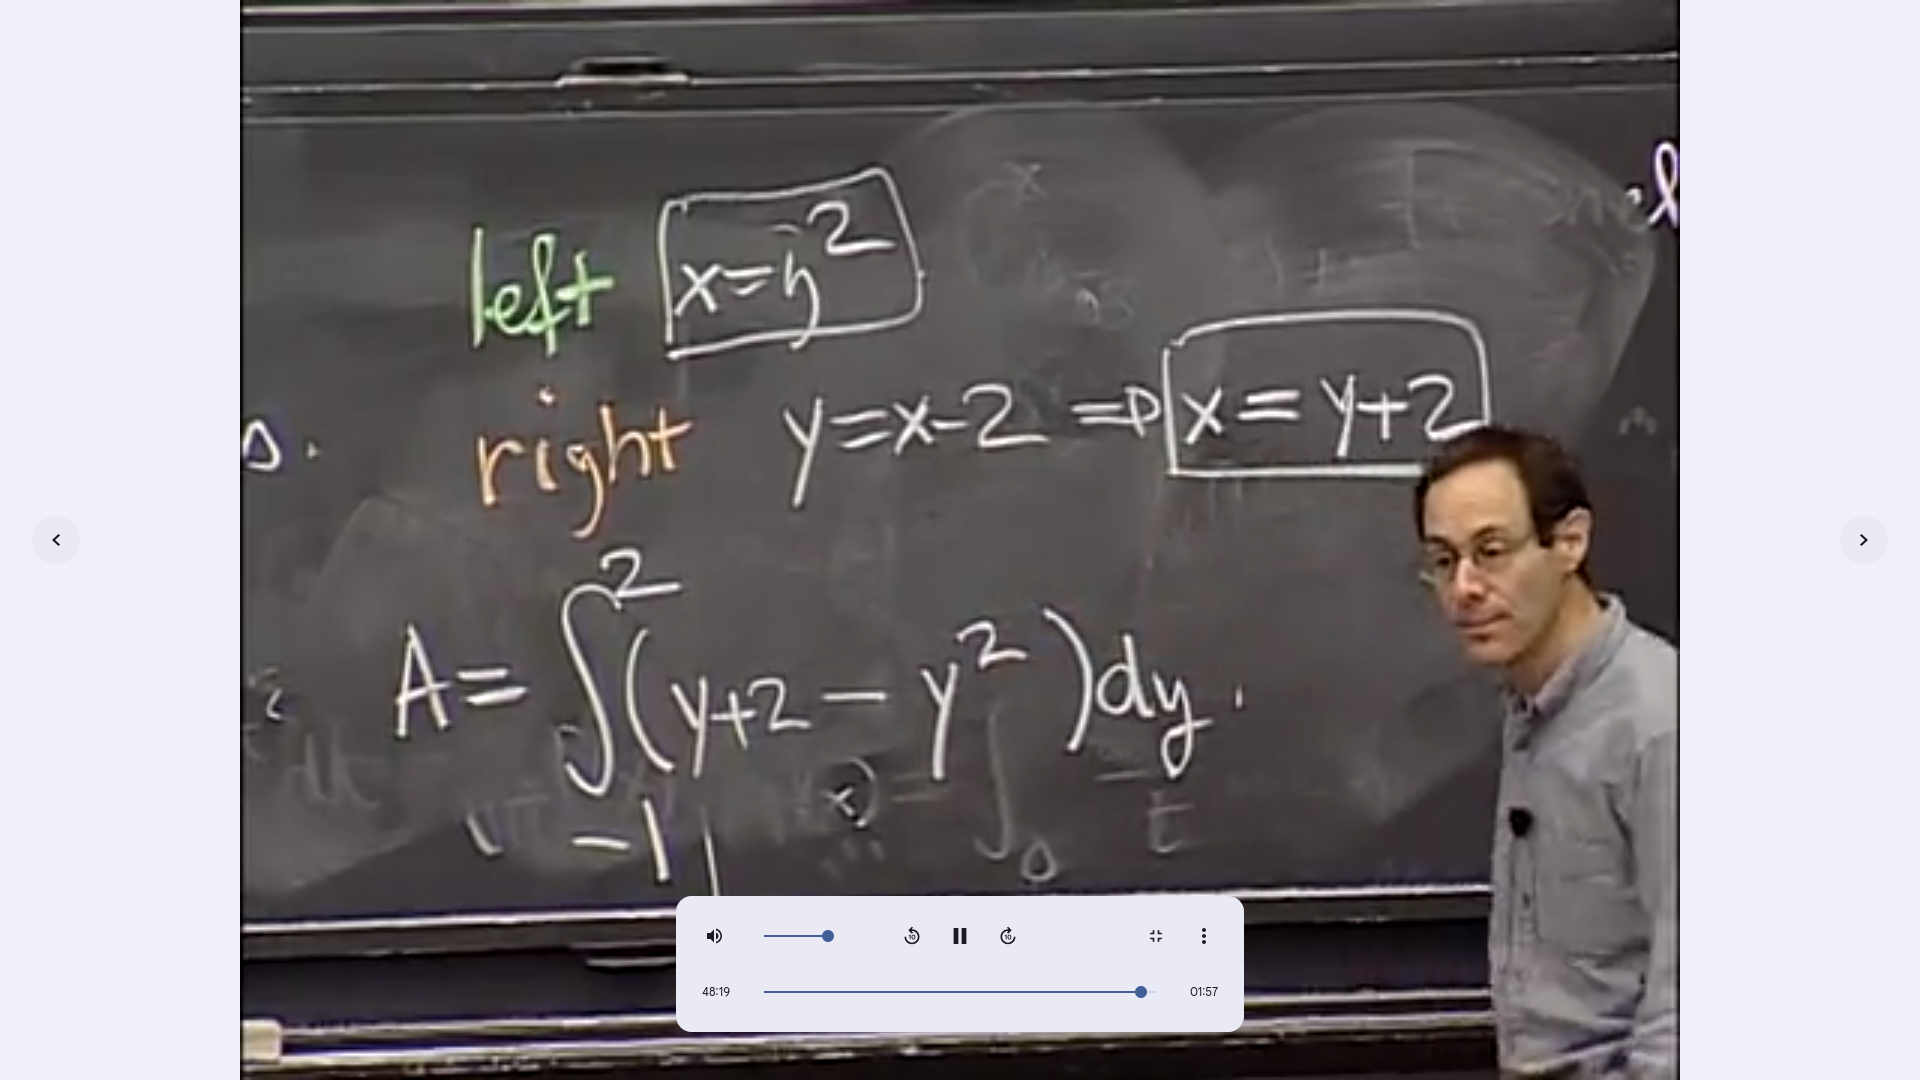 left x=y²
right y=x-2 ⇒ x = y+2
A= ∫₋₁² (y+2 - y²)dy.
48:19 01:57